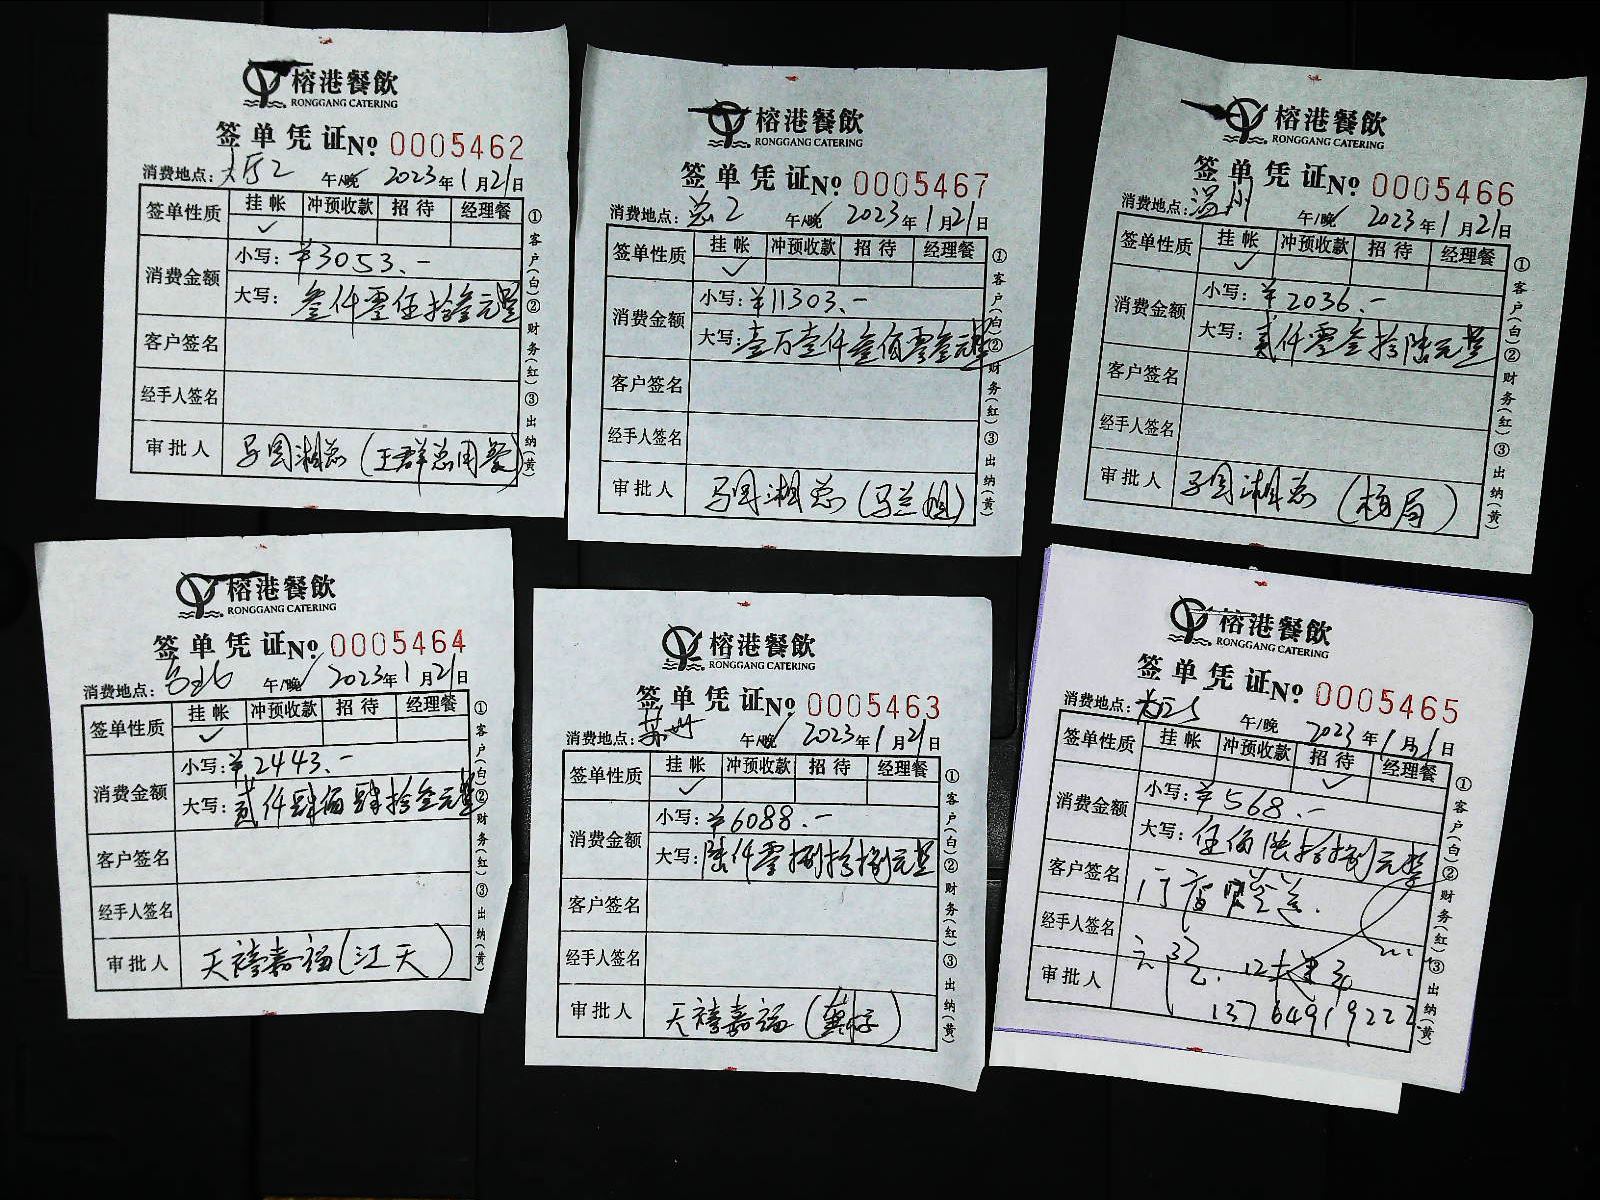 榕港餐飲
RONGGANG CATERING
签单凭证 No. 0005462
消费地点：大厅2 午/晚 2023年1月21日
签单性质 挂帐 冲预收款 招待 经理餐
✓
消费金额 小写：¥3053.-
大写：叁仟零伍拾叁元整
客户签名
经手人签名
审批人 马国湘总（王群总用餐）
①客户(白)②财务(红)③出纳(黄)
榕港餐飲
RONGGANG CATERING
签单凭证 No. 0005467
消费地点：总2 午/晚 2023年1月21日
签单性质 挂帐 冲预收款 招待 经理餐
✓
消费金额 小写：¥11303.-
大写：壹万壹仟叁佰零叁元整
客户签名
经手人签名
审批人 马国湘总（马兰姐）
①客户(白)②财务(红)③出纳(黄)
榕港餐飲
RONGGANG CATERING
签单凭证 No. 0005466
消费地点：温州 午/晚 2023年1月21日
签单性质 挂帐 冲预收款 招待 经理餐
✓
消费金额 小写：¥2036.-
大写：贰仟零叁拾陆元整
客户签名
经手人签名
审批人 马国湘总（杨局）
①客户(白)②财务(红)③出纳(黄)
榕港餐飲
RONGGANG CATERING
签单凭证 No. 0005464
消费地点：台北 午/晚 2023年1月21日
签单性质 挂帐 冲预收款 招待 经理餐
✓
消费金额 小写：¥2443.-
大写：贰仟肆佰肆拾叁元整
客户签名
经手人签名
审批人 天禧嘉福（江天）
①客户(白)②财务(红)③出纳(黄)
榕港餐飲
RONGGANG CATERING
签单凭证 No. 0005463
消费地点：苏州 午/晚 2023年1月21日
签单性质 挂帐 冲预收款 招待 经理餐
✓
消费金额 小写：¥6088.-
大写：陆仟零捌拾捌元整
客户签名
经手人签名
审批人 天禧嘉福
①客户(白)②财务(红)③出纳(黄)
榕港餐飲
RONGGANG CATERING
签单凭证 No. 0005465
消费地点： 午/晚 2023年1月21日
签单性质 挂帐 冲预收款 招待 经理餐
✓
消费金额 小写：¥568.-
大写：伍佰陆拾捌元整
客户签名
经手人签名
审批人 13764919222
①客户(白)②财务(红)③出纳(黄)